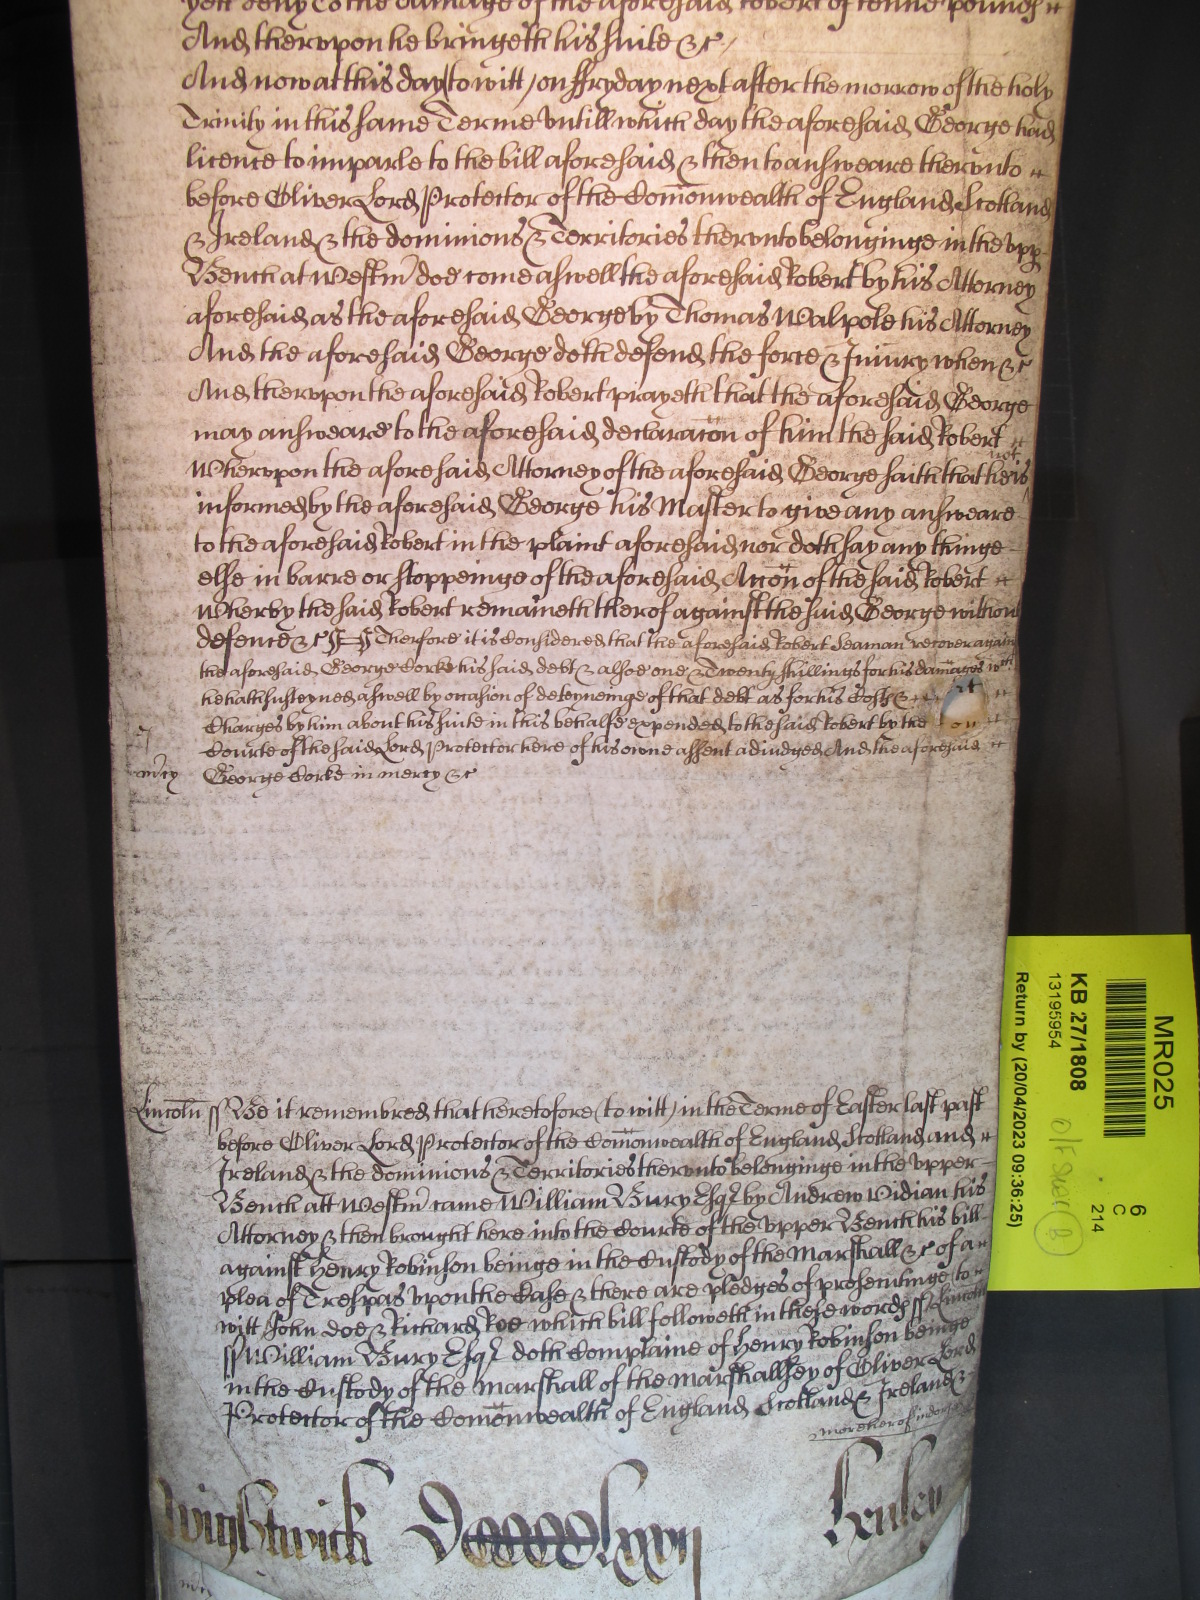 yett deny to the damage of the aforesaid Robert of tenne pounds
And thervpon he bringeth his suite &c
And now at this day (to witt) on ffryday next after the morrow of the holy
Trinity in this same Terme vntill which day the aforesaid George had
licence to imparle to the bill aforesaid & then to answeare thervnto
before Oliver Lord Protector of the Comonwealth of England Scotland
& Ireland & the dominions & Territories thervnto belonginge in the vpp
Bench at Westm doe come aswell the aforesaid Robert by his Attorney
aforesaid as the aforesaid George by Thomas Walpole his Attorney
And the aforesaid George doth defend the force & Iniury when &c
And thervpon the aforesaid Robert prayeth that the aforesaid George
may answeare to the aforesaid declaracon of him the said Robert
Whervpon the aforesaid Attorney of the aforesaid George saith that he is not
informed by the aforesaid George his Master to give any answeare
to the aforesaid Robert in the plaint aforesaid nor doth say any thinge
else in barre or stoppeinge of the aforesaid Accon of the said Robert
Wherby the said Robert remaineth therof against the said George without
defence &c Therfore it is Considered that the aforesaid Robert Seaman recover against
the aforesaid George Corke his said debt & alsoe one & Twenty shillings for his damages wch
he hath susteyned aswell by occasion of deteyneinge of that debt as for his Costs &
Charges by him about his suite in this behalfe expended to the said Robert by the
Courte of the said Lord Protector here of his owne assent adiudged And the aforesaid
mcy George Corke in mercy &c
Lincoln ss Be it remembred that heretofore (to witt) in the Terme of Easter last past
before Oliver Lord Protector of the Comonwealth of England Scotland and
Ireland & the dominions & Territories thervnto belonginge in the vpper
Bench att Westm came William Bury Esqr by Andrew Vidian his
Attorney & then brought here into the Courte of the vpper Bench his bill
against Henry Robinson beinge in the Custody of the Marshall &c of a
plea of Trespas vpon the Case & there are pledges of prosecutinge to
witt John Doe & Richard Roe which bill followeth in these words ss Lincoln
ss William Bury Esqr doth Complaine of Henry Robinson beinge
in the Custody of the Marshall of the Marshallsey of Oliver Lord
Protector of the Comonwealth of England Scotland & Ireland &
more herof indors
Wightwick Dccccclxxvij Henley
MR025
KB 27/1808
13195954
6
C
214
Return by (20/04/2023 09:36:25)